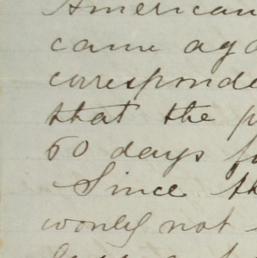 American
came aga
corresponde
that the p
60 days f
Since th
would not